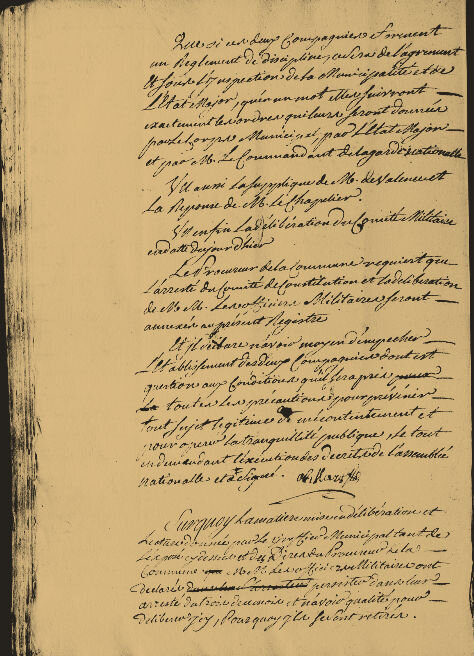 Que si ces deux Compagnies forment
un Reglement de discipline, ce sera de l'agrement
et sous l'Inspection de la Municipalité et de
l'Etat Major, qu'en un mot elles suivront
exactement les ordres qui leurs seront donnés
par le Corps Municipal, par l'Etat Major
et par M. Le Commandant de la garde nationalle
Vu aussi la supplique de M. de Valence et
la Reponse de M. le Chapelier.
Vu enfin la déliberation du Comité Militaire
en datte du jour d'hier
Le Procureur de la Commune requiert que
l'arresté du Comité de Constitution et la deliberation
de M.M. Les officiers Militaires seront
annexés au présent Registre
Et déclare n'avoir moyen d'empecher
l'Etablissement des deux Compagnies dont est
question aux Conditions qu'il sera pris
toutes les précautions pour prévenir
tout sujet legitime de mécontentement et
pour operer la tranquilité publique, le tout
en demandant l'exécution des decrets de l'assemblée
nationalle et a signé.
Surquoy la matiere mise en déliberation et
Lecture donnée par le Officier Municipal tant de
exposé cydessus et des dires du Procureur de la
Commune M.M. Les officiers Militaires ont
declaré persister dans leur
arresté du trois de ce mois et n'avoir qualité pour
deliberer icy, Pourquoy ils se sont retirés.